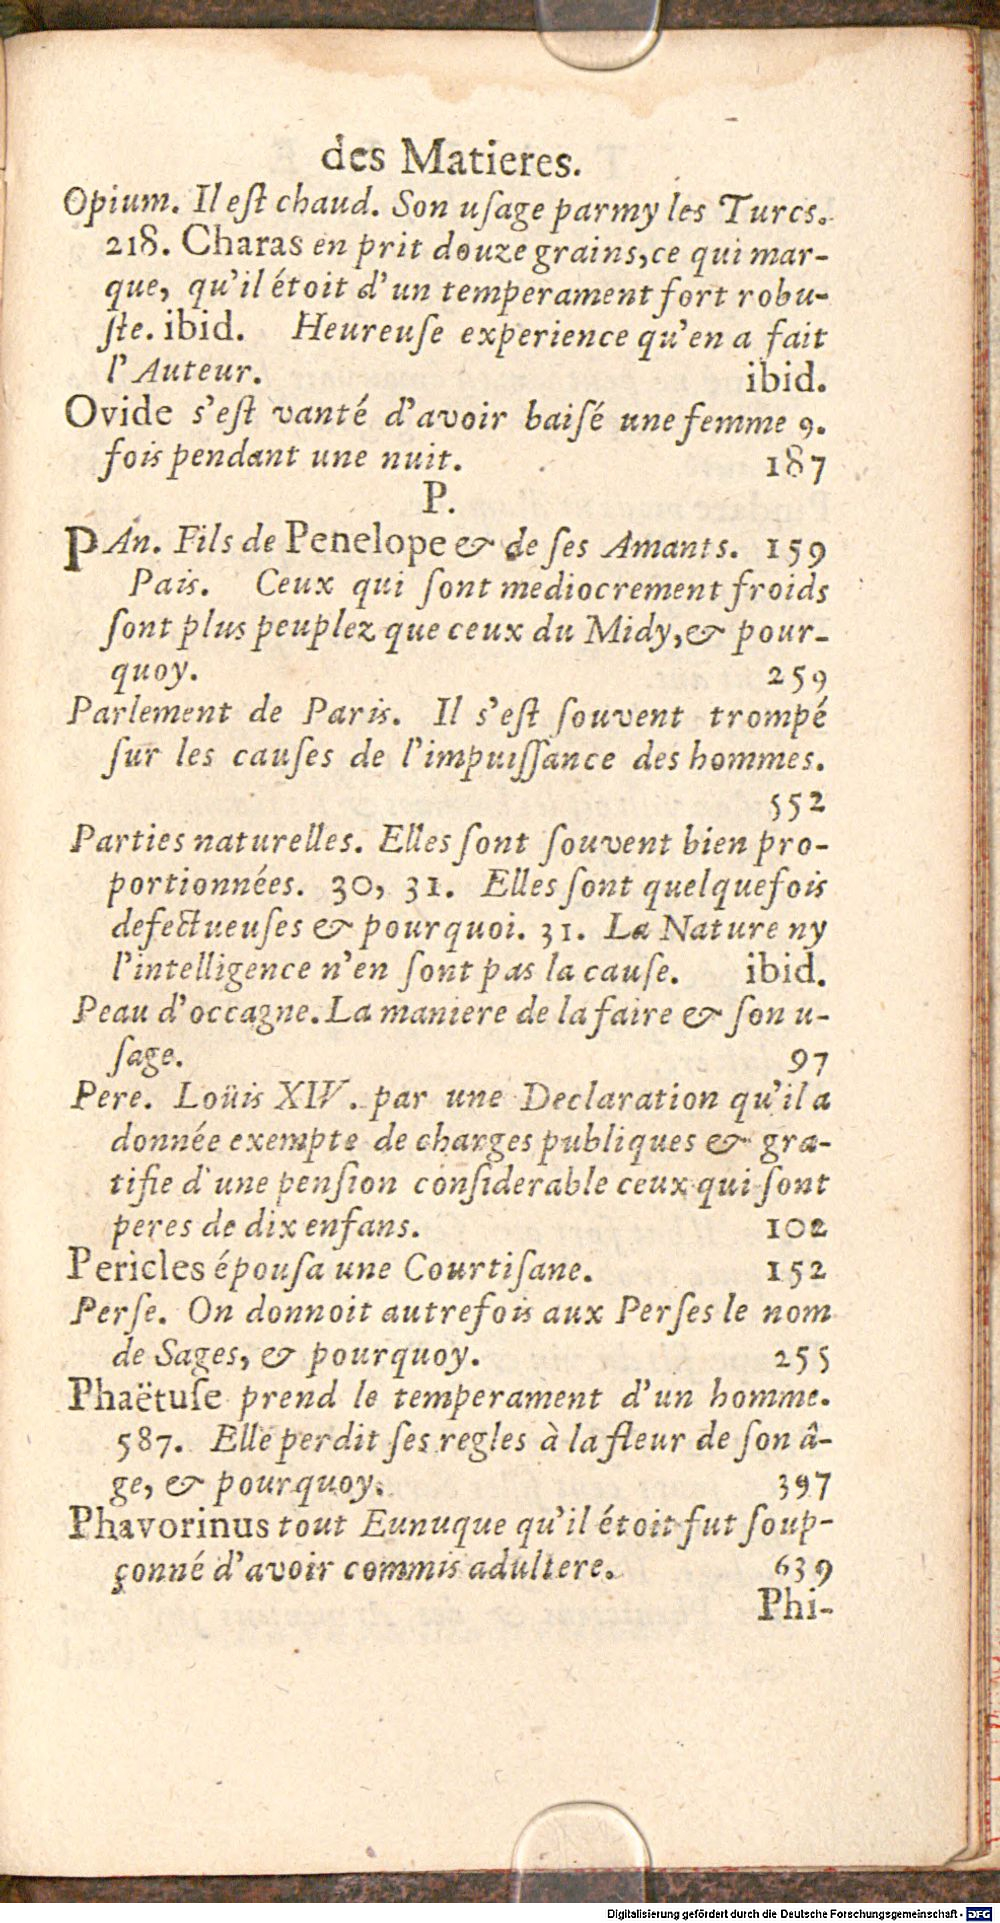 des Matieres.
Opium. Il eſt chaud. Son uſage parmy les Turcs.
218. Charas en prit douze grains, ce qui mar-
que, qu'il étoit d'un temperament fort robu-
ſte. ibid. Heureuſe experience qu'en a fait
l'Auteur. ibid.
Ovide s'eſt vanté d'avoir baiſé une femme 9.
fois pendant une nuit. 187
P.
PAn. Fils de Penelope & de ſes Amants. 159
Pais. Ceux qui ſont mediocrement froids
ſont plus peuplez que ceux du Midy, & pour-
quoy. 259
Parlement de Paris. Il s'eſt ſouvent trompé
ſur les cauſes de l'impuiſſance des hommes.
552
Parties naturelles. Elles ſont ſouvent bien pro-
portionnées. 30, 31. Elles ſont quelquefois
defectueuſes & pourquoi. 31. La Nature ny
l'intelligence n'en ſont pas la cauſe. ibid.
Peau d'occagne. La maniere de la faire & ſon u-
ſage. 97
Pere. Loüis XIV. par une Declaration qu'il a
donnée exempte de charges publiques & gra-
tifie d'une penſion conſiderable ceux qui ſont
peres de dix enfans. 102
Pericles épouſa une Courtiſane. 152
Perſe. On donnoit autrefois aux Perſes le nom
de Sages, & pourquoy. 255
Phaëtuſe prend le temperament d'un homme.
587. Elle perdit ſes regles à la fleur de ſon â-
ge, & pourquoy. 397
Phavorinus tout Eunuque qu'il étoit fut ſoup-
çonné d'avoir commis adultere. 639
Phi-
Digitalisierung gefördert durch die Deutsche Forschungsgemeinschaft - DFG